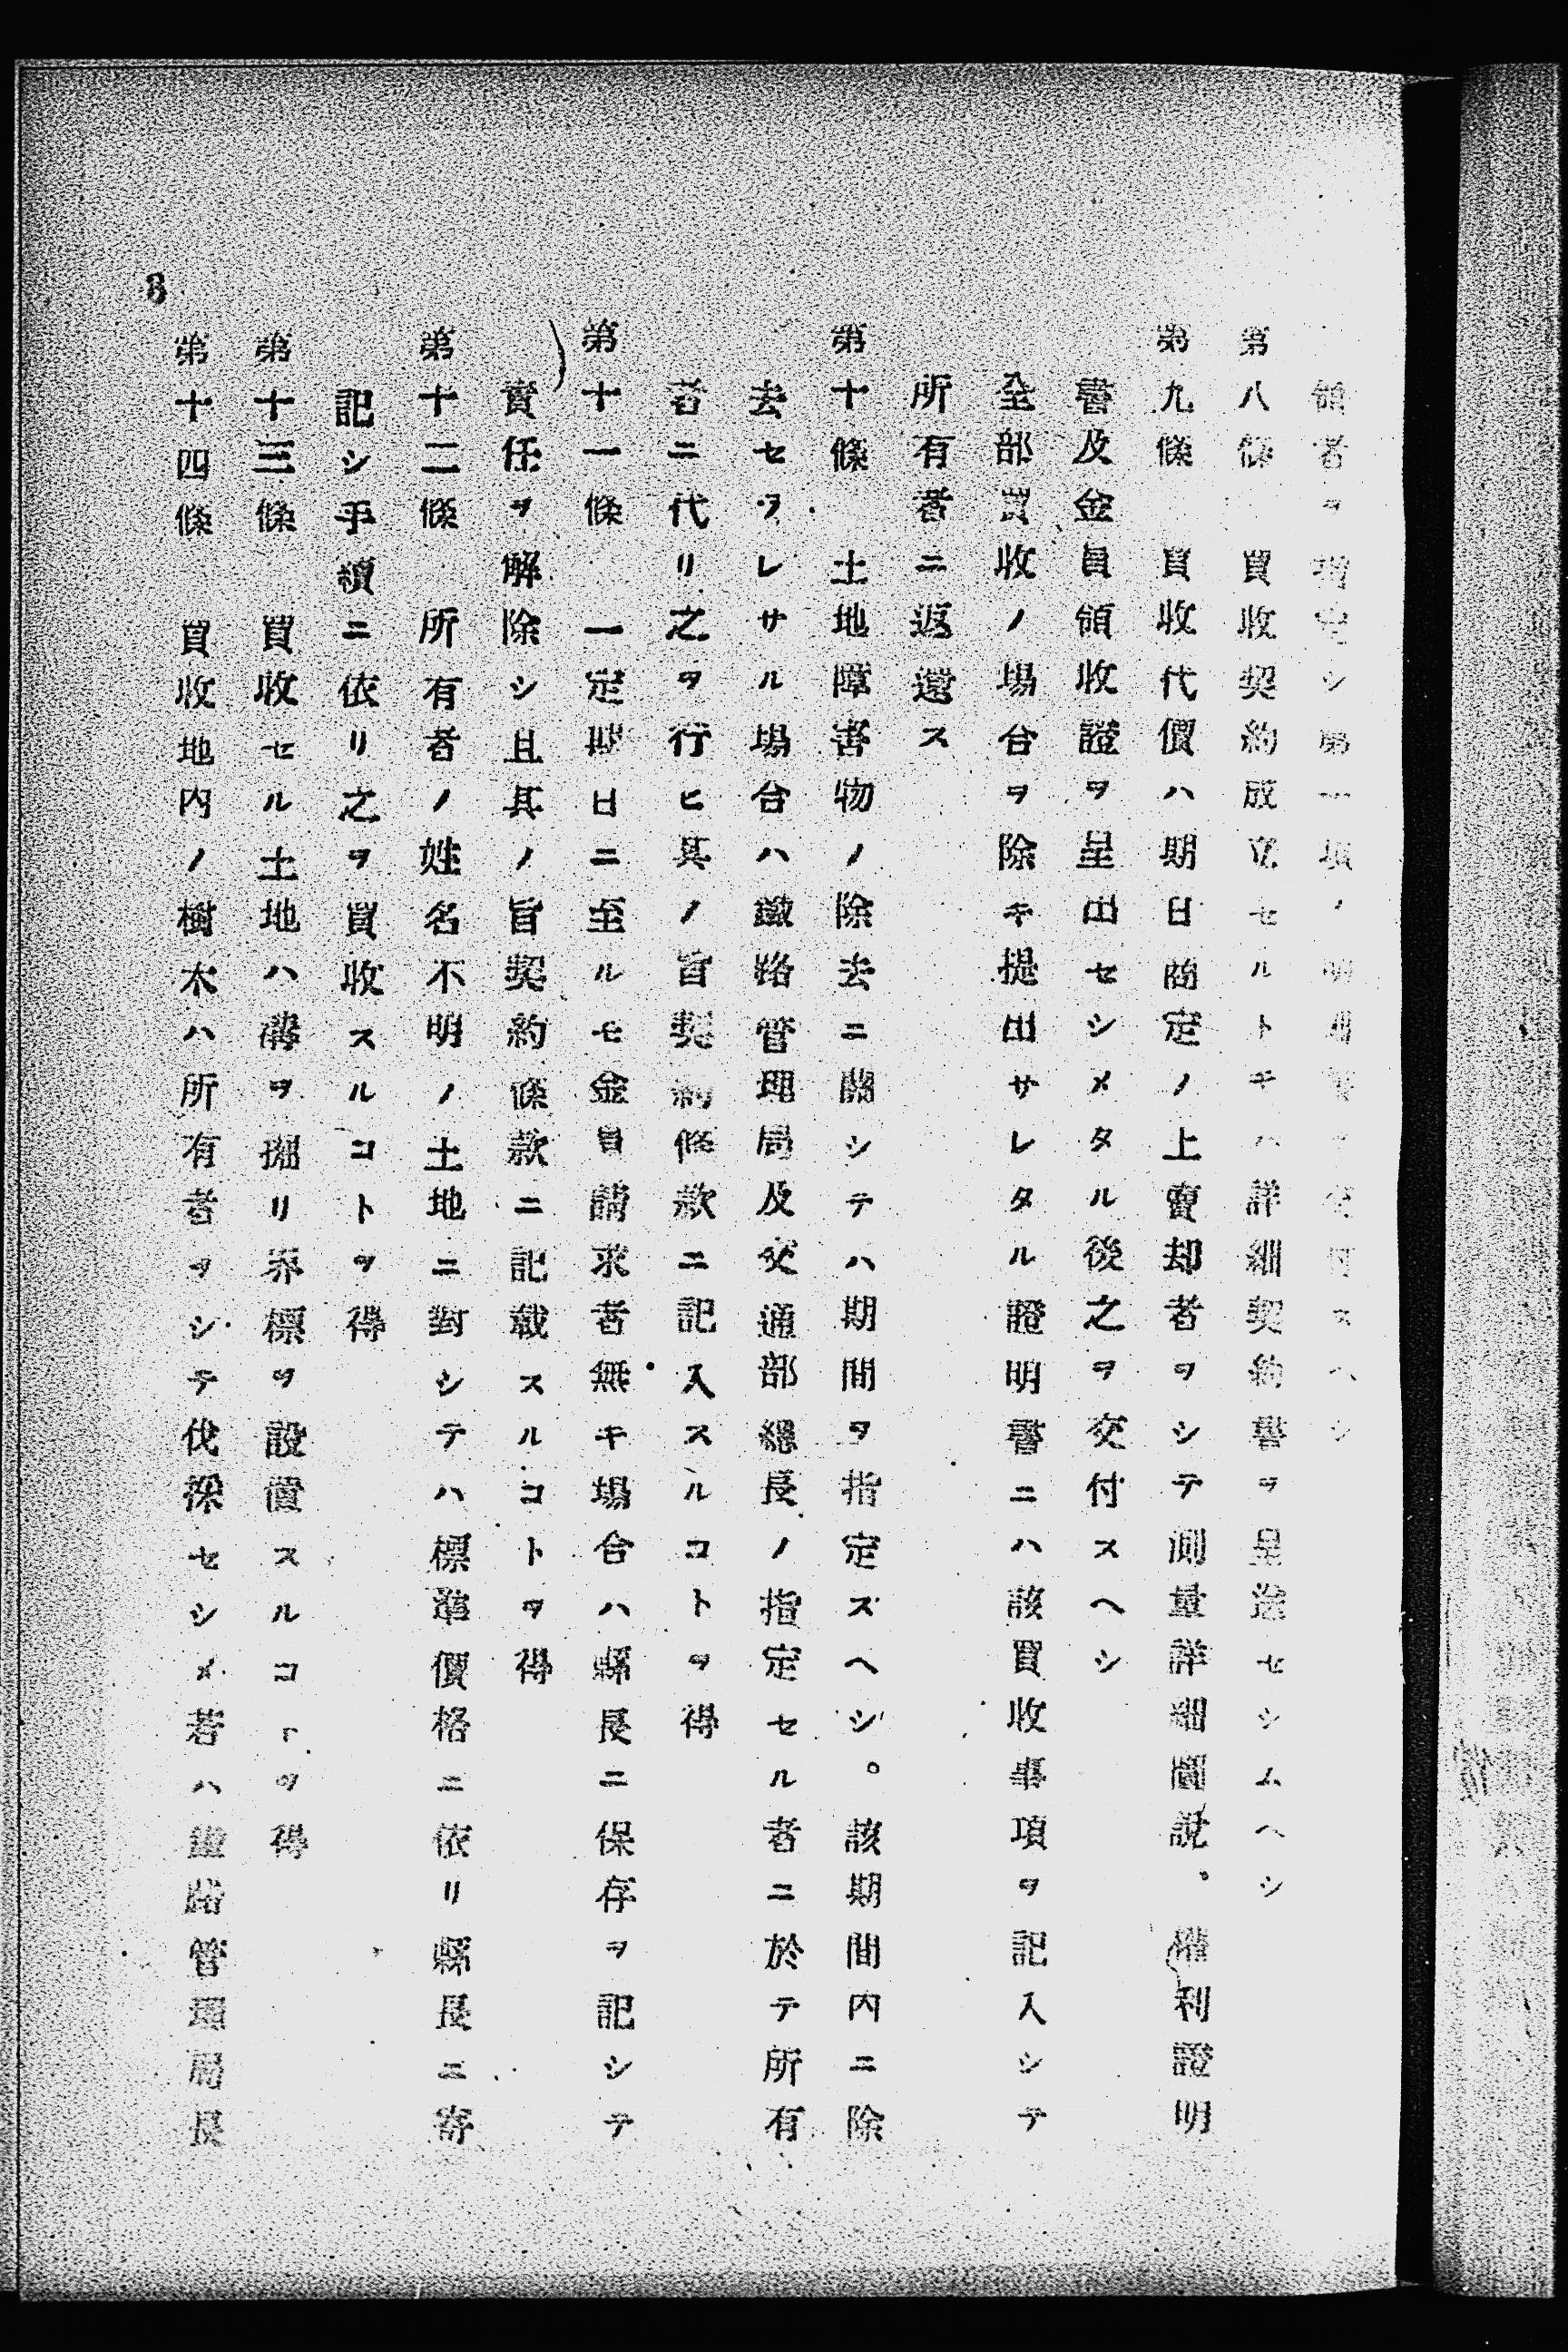 領者ヲ指定シ第一項ノ明細書ヲ交付スヘシ
第八條　買收契約成立セルトキハ詳細契約書ヲ呈送セシムヘシ
第九條　買收代價ハ期日商定ノ上賣却者ヲシテ測量詳細圖說、權利證明
書及金員領收證ヲ呈出セシメタル後之ヲ交付スヘシ
全部買收ノ場合ヲ除キ提出サレタル證明書ニハ該買收事項ヲ記入シテ
所有者ニ返還ス
第十條　土地障害物ノ除去ニ關シテハ期間ヲ指定スヘシ。該期間內ニ除
去セラレサル場合ハ鐵路管理局及交通部總長ノ指定セル者ニ於テ所有
者ニ代リ之ヲ行ヒ其ノ旨契約條款ニ記入スルコトヲ得
第十一條　一定期日ニ至ルモ金員請求者無キ場合ハ縣長ニ保存ヲ記シテ
責任ヲ解除シ且其ノ旨契約條款ニ記載スルコトヲ得
第十二條　所有者ノ姓名不明ノ土地ニ對シテハ標準價格ニ依リ縣長ニ寄
記シ手續ニ依リ之ヲ買收スルコトヲ得
第十三條　買收セル土地ハ溝ヲ掘リ界標ヲ設置スルコトヲ得
第十四條　買收地內ノ樹木ハ所有者ヲシテ伐採セシメ若ハ鐵路管理局長
8